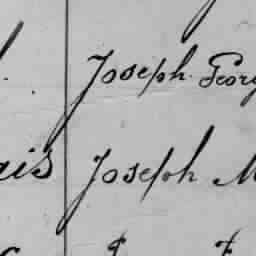 Joseph Georg
ais Joseph M